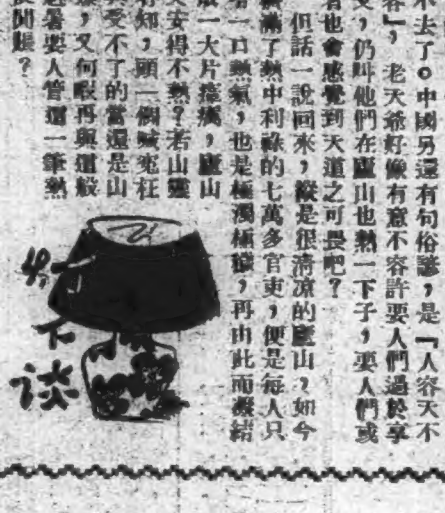 不去了。中國另還有句俗諺，是『人容天不
容』，老天爺好像有意不容許要人們過於享
受，仍叫他們在廬山也熱一下子，要人們或
者也會感覺到天道之可畏吧？
但話一說回來，縱是很清涼的廬山，如今
擠滿了熱中利祿的七萬多官吏，便是每人只
一口熱氣，也是極濁極穢，再由此而凝結
成一大片瘴癘，廬山
又安得不熱？若山靈
有知，頭一個喊冤枉
受不了的當還是山
，又何暇再與這般
避暑要人管這一筆熱
閒賬？
灯下谈